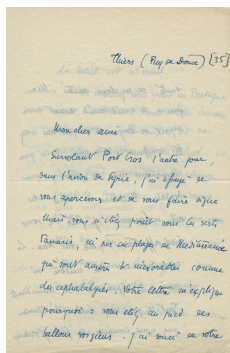 Thiers (Puy de Dôme) [35]
Mon cher ami
Survolant Port Cros l'autre jour,
dans l'avion de Ajaccio, j'ai essayé de
vous apercevoir et de vous faire signe
mais vous n'étiez point sous les verts
Panaris, ni sur ces plages de Méditerranée
qui sont amères & inexorables comme
des céphalalgies. Votre lettre m'explique
pourquoi : vous étiez au pied des
ballons vosgiens. J'ai de votre